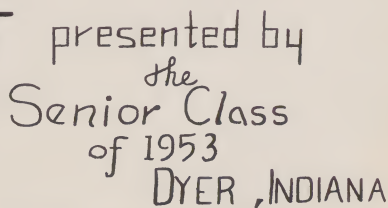 presented by
the
Senior Class
of 1953
DYER, INDIANA